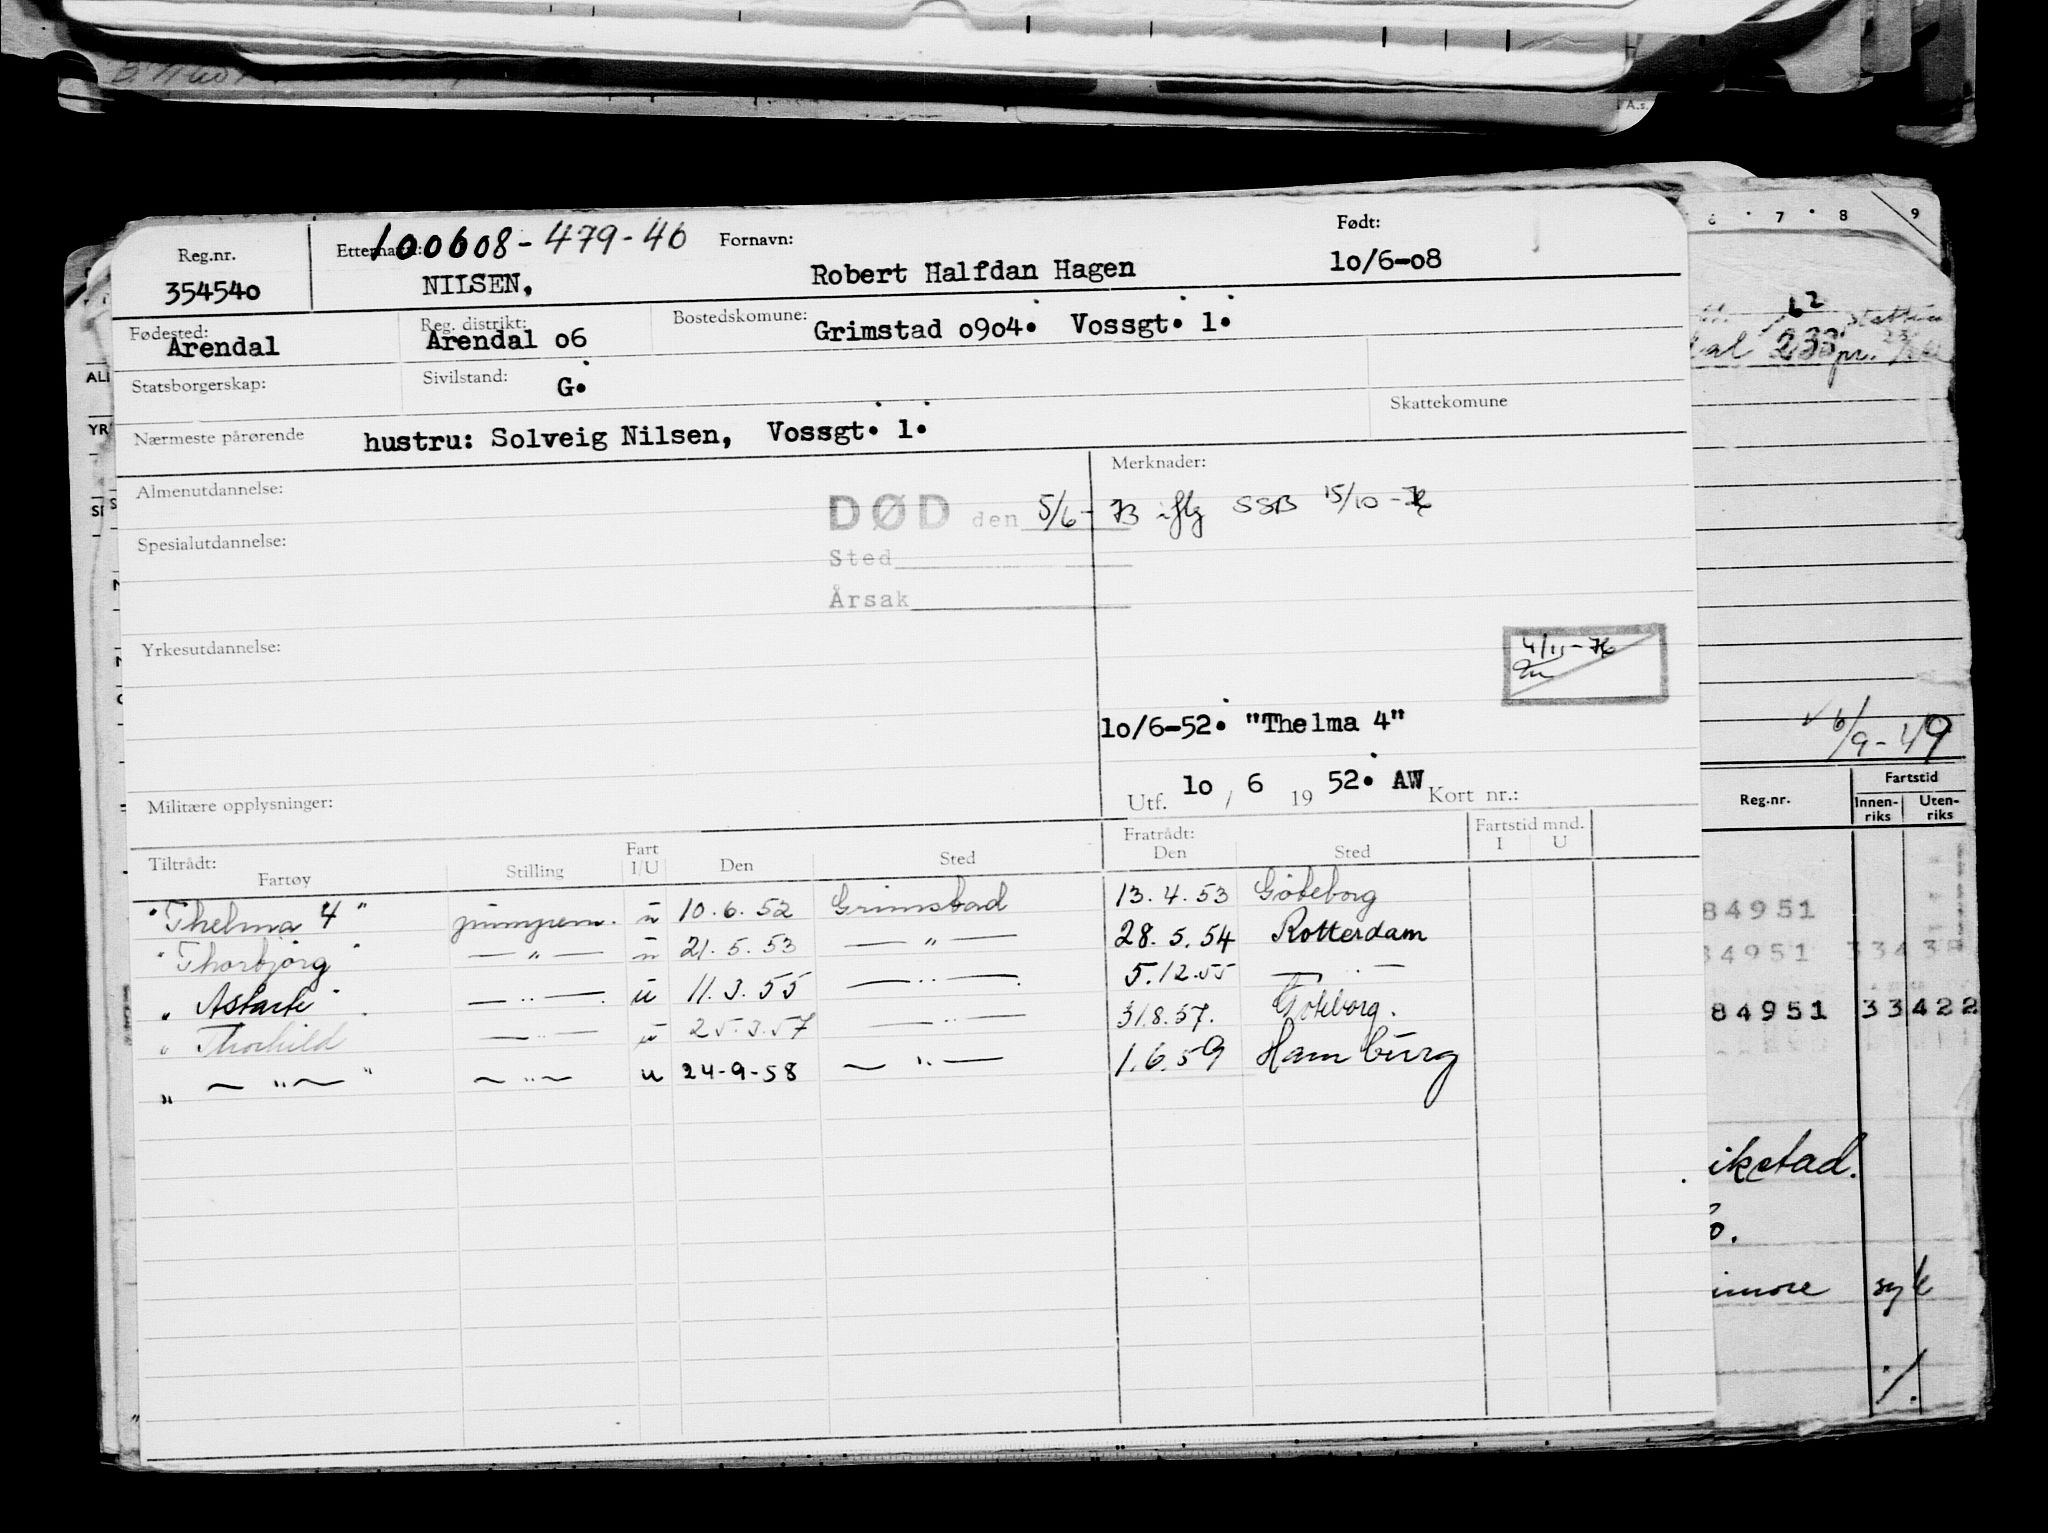 A.s.
Reg.nr. Etternavn: 100608-479-46 Fornavn: Født:
354540 NILSEN, Robert Halfdan Hagen 10/6-08
Fødested: Reg. distrikt: Bostedskomune:
Arendal Arendal 06 Grimstad 0904. Vossgt. 1.
Statsborgerskap: Sivilstand: G.
Skattekomune
Nærmeste pårørende hustru: Solveig Nilsen, Vossgt. 1.
Almenutdannelse: Merknader:
DØD den 5/6-73 iflg SSB 15/10-76
Spesialutdannelse: Sted
Årsak
Yrkesutdannelse: 4/11-76
10/6-52. "Thelma 4"
Militære opplysninger: Utf. 10 / 6 19 52. AW Kort nr.:
Tiltrådt: Fratrådt: Fartstid mnd.
Fartøy Stilling Fart I/U Den Sted Den Sted I U
"Thelma 4" u 10.6.52 Grimstad 13.4.53 Göteborg
"Thorbjørg" — " — u 21.5.53 — " — 28.5.54 Rotterdam
" Astarte " — " — u 11.3.55 — " — 5.12.55 — " —
" Thorhild — " — u 25.3.57 — " — 31.8.57. Göteborg.
" — " — " — " — u 24-9-58 — " — 1.6.59 Hamburg
6 7 8 9
62
233 pr.
6/9-49
Reg.nr. Fartstid
Innen-riks Uten-riks
84951
84951
84951 33422
ikstad.
o.
imore syk